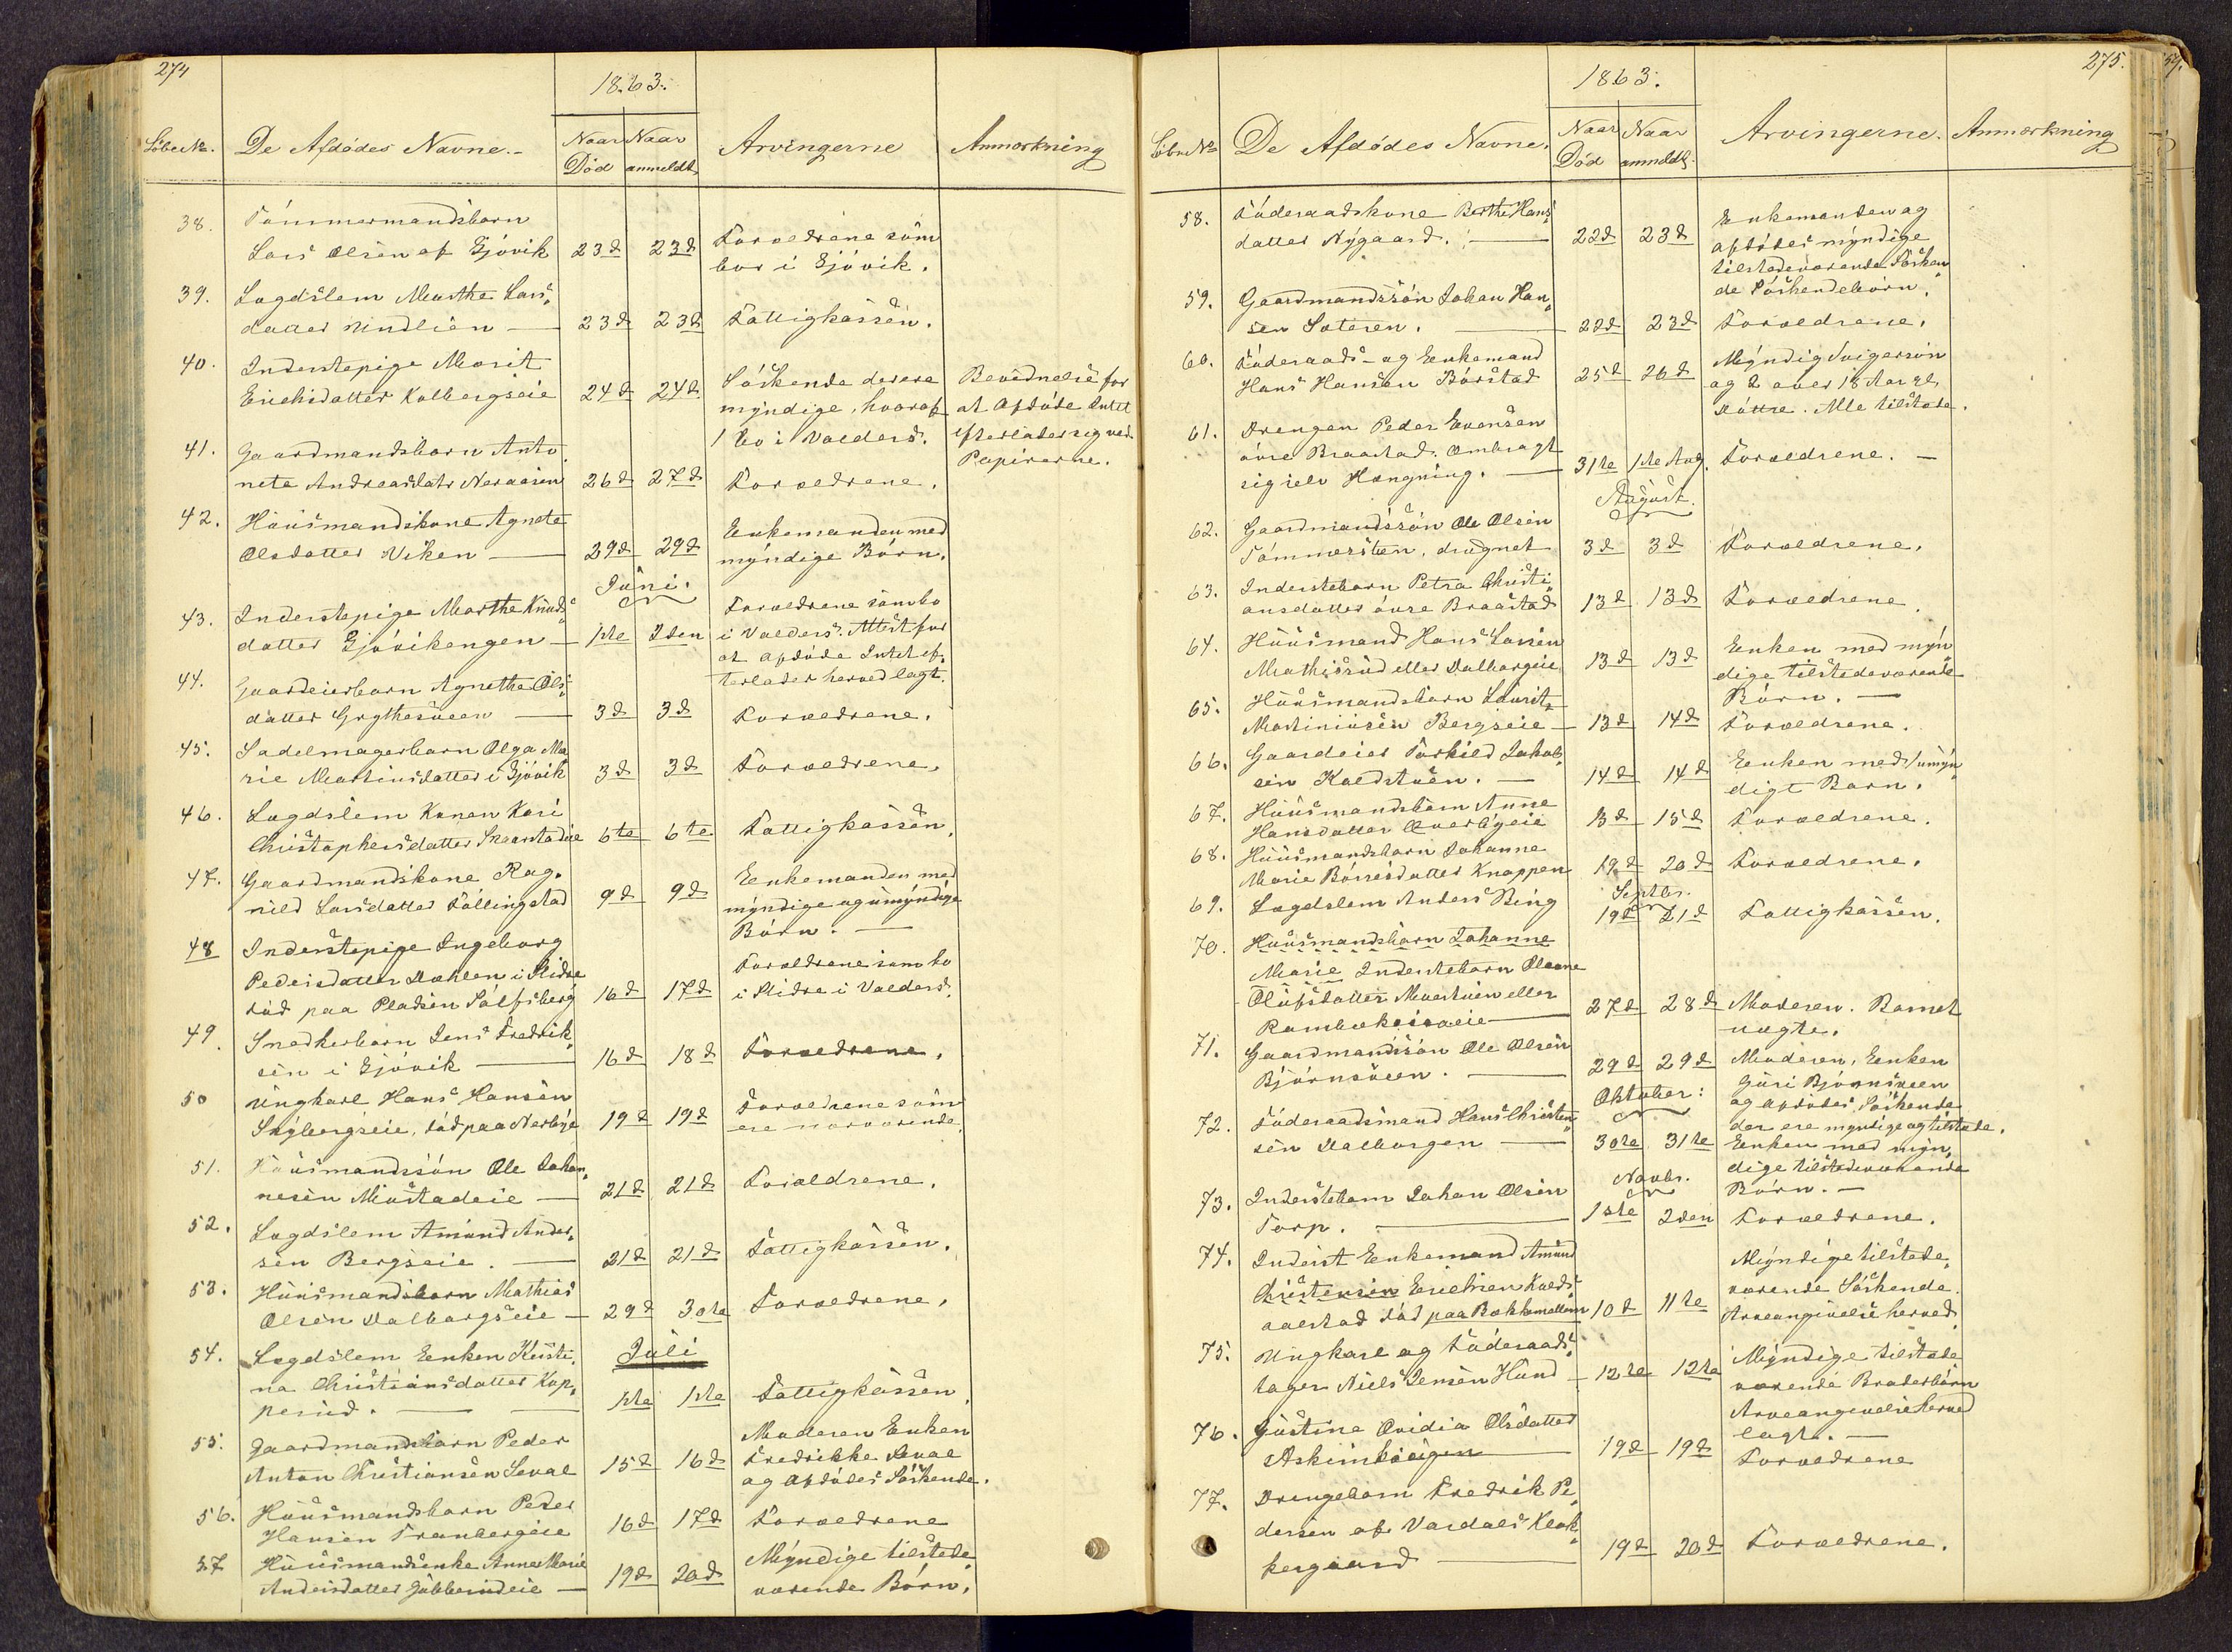 274
1863.
Löbe No. De Afdødes Navne.- Naar Død Naar anmeldt Arvingerne Anmærkning
38. Tömmermandsbarn
Lars Olsen af Gjövik 23d 23d Forældrene som
bor i Gjövik.
39. Lægdslem Marthe Lars„
datter Nindlien — 23d 23d Fattigkassen.
40. Inderstepige Marit
Erichsdatter Kolbergseie 24d 24d Söskende der ere Bevidnelse for
myndige, hvoraf at Afdöde Intet
1 bo i Valders. efterlader sig ved
Papirerne.
41. Gaardmandsbarn Anto„
nete Andreasdatr Neraasen 26d 27d Forældrene.
42. Huusmandskone Agnete
Olsdatter Viken — 29d 29d Enkemanden med
myndige Börn.
Juni.
43. Inderstepige Marthe Knuds„
datter Gjövikengen — 1ste 2den Forældrene som bo
i Valders. Attest for
at afdöde Intet ef„
terlader herved lagt.
44. Gaardeierbarn Agnethe Ols„
datter Grythesveen — 3d 3d Forældrene.
45. Sadelmagerbarn Olga Ma„
rie Martinsdatter i Gjövik 3d 3d Forældrene.
46. Lægdslem Konen Kari
Christophersdatter Skaarstadeie 6te 6te Fattigkassen.
47. Gaardmandskone Rag„
nild LarsdatterFöllingstad 9d 9d Eenkemanden med
myndige og umyndige
Börn. —
48 Inderstepige Ingeborg
Pedersdatter Dahlen i Slidre
död paa Pladsen Sölfsberg 16d 17d Forældrene som bo
i Slidre i Valders.
49. Snedkerbarn Jens Fredrik„
sen i Gjövik — 16d 18d Forældrene.
50 Ungkarl Hans Hansen
Skybergseie, död paa Nerbye 19d 19d Forældrene som
ere nærværende.
51. Huusmandssön Ole Johan„
nesen Mustadeie — 21d 21d Forældrene.
52. Lægdslem Amund Ander„
sen Bergseie. — 21d 21d Fattigkassen.
53. Huusmandsbarn Mathias
Olsen Dalborgseie — 29d 30te Forældrene.
Juli
54. Lægdslem Eenken Kristi„
na Christiansdatter Kop„
perud. — 1ste 1ste Fattigkassen.
55. Gaardmandsbarn Peder
Anton Christiansen Seval 15d 16d Moderen Enken
Fredrikke Seval
og Afdödes Söskende.
56. Huusmandsbarn Peder
Hansen Tranbergeie 16d 17d Forældrene
57 Huusmandsenke Anne Marie
Andersdatter Gubberudeie — 19d 20d Myndige tilstede„
værende Börn.
275.
1863.
Löbe No De Afdödes Navne. Naar Död Naar anmeldt. Arvingerne. Anmærkning
58. Föderaadskone Berthe Hans„
datter Nygaard. — 22d 23d Enkemanden og
afdödes myndige
tilstedeværende Sösken„
de Söskendebörn.
59. Gaardmandssön Johan Han„
sen Sæteren. — 22d 23d Forældrene.
60. Föderaads- og Eenkemand
Hans Hansen Börstad 25d 26d Myndig Svigersön
og 2 over 18 Aar gl.
Döttre. Alle tilstede.
61. Drengen Peder Evensen
övre Braastad. Ombragt
sig selv Hængning. — 31te 1ste Aug. Forældrene. —
August.
62. Gaardmandssön Ole Olsen
Tömmersteen, druknet 3d 3d Forældrene.
63. Inderstebarn Petra Christi„
ansdatter övre Braastad 13d 13d Forældrene.
64. Huusmand Hans Larsen
Mathisrud eller Dalborgeie 13d 13d Enken med myn„
dige tilstedeværende
Börn. —
65. Huusmandsbarn Laurits
Martiniusen Bergseie — 13d 14d Forældrene.
66. Gaardeier Torkild Jakob„
sen Koldstuen. — 14d 14d Eenken med 1 umyn„
digt Barn.
67. Huusmandsbarn Anne
Hansdatter Overbyeie 13d 15d Forældrene.
68. Huusmandsbarn Johanne
Marie Börresdatter Knappen 19d 20d Forældrene.
Septbr.
69. Lægdslem Anders Bing 19d 21d Fattigkassen.
70. Huusmandsbarn Johanne
Marie Inderstebarn Oleane
Olufsdatter Mustuen eller
— 27d 28d Moderen. Barnet
uægte.
71. Gaardmandssön Ole Olsen
Björnsveen. — 29d 29d Moderen, Eenken
Guri Björnsveen
og Afdödes Söskende
der ere myndige og tilstede.
Oktober:
72. Föderaadsmand Hans Christen„
sen Dalborgen — 30te 31te Eenken med myn„
dige tilstedeværende
Börn. —
Novbr.
73. Inderstebarn Johan Olsen
Torp. — 1ste 2den Forældrene.
74. Inderst Eenkemand Amund
Christensen Erichsen Kolds„
aalstad död paa Bakkemellem 10d 11te Myndige tilstede„
værende Söskende.
Arveangivelse herved.
75. Ungkarl og Föderaads„
tager Niels Jensen Hund — 12te 12te Myndige tilstede
værende Broderbörn
Arveangivelse herved
lagt. —
76. Gustine Ovidia Olsdatter
Askimhaugen — 19d 19d Forældrene
77. Drengebarn Fredrik Pe„
dersen af Vardals Klok„
kergaard — 19d 20d Forældrene.